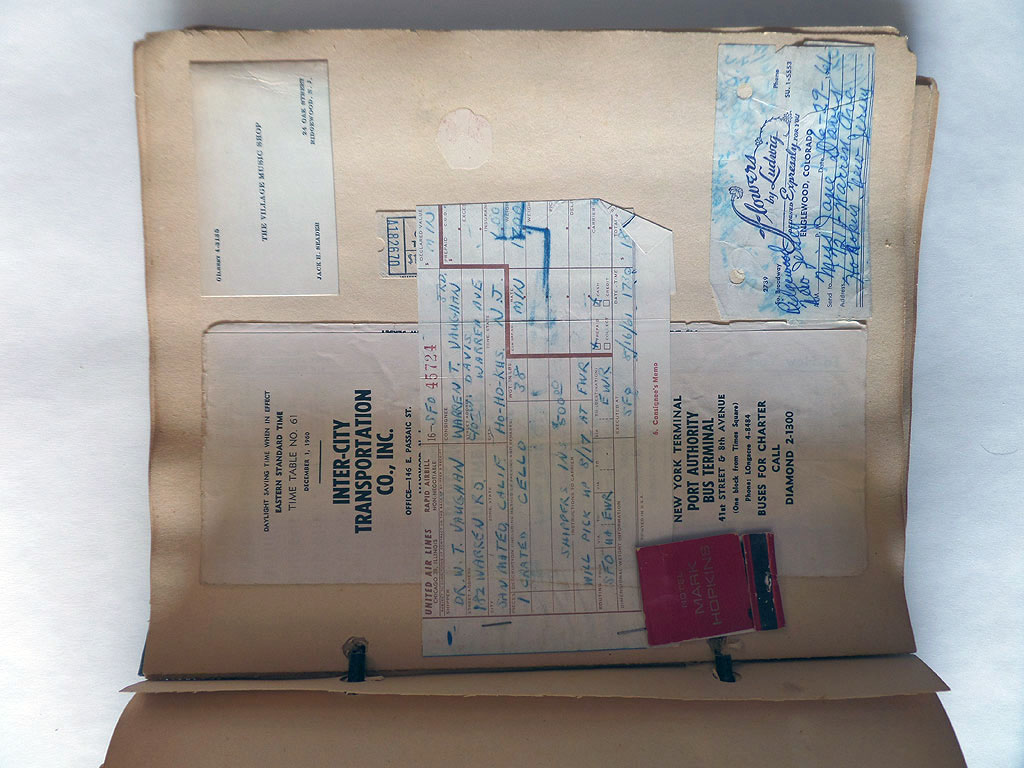 GILBERT 4-3185
THE VILLAGE MUSIC SHOP
JACK H. SEADER
24 OAK STREET
RIDGEWOOD, N. J.
A182670
DAYLIGHT SAVING TIME WHEN IN EFFECT
EASTERN STANDARD TIME
TIME TABLE NO. 61
DECEMBER 1, 1960
INTER-CITY
TRANSPORTATION
CO., INC.
OFFICE—146 E. PASSAIC ST.
NEW YORK TERMINAL
PORT AUTHORITY
BUS TERMINAL
41st STREET & 8th AVENUE
(One block from Times Square)
Phone: LOngacre 4-8484
BUSES FOR CHARTER
CALL
DIAMOND 2-1300
UNITED AIR LINES
CHICAGO 38, ILLINOIS
RAPID AIRBILL
NON-NEGOTIABLE
16-SFO 45724
DR. W. T. VAUGHAN
WARREN T. VAUGHAN
WARREN RD
DAVIS
WARREN AVE
SAN MATEO, CALIF
HO-HO-KUS, N.J.
1 CRATED CELLO
38
MIN
SHIPPER INS 500.00
WILL PICK UP 8/17 AT EWR
SFO UA EWR
EWR
SFO
6. Consignee's Memo
HOTEL
MARK
HOPKINS
Flowers
by Ludwig
Designed Expressly FOR YOU
2739 So. Broadway
ENGLEWOOD, COLORADO
Phone SU. 1-5553
Ridgewood
New Jersey
Date 6-29
Send to Miss Jane Davis
Address Warren Ave
New Jersey